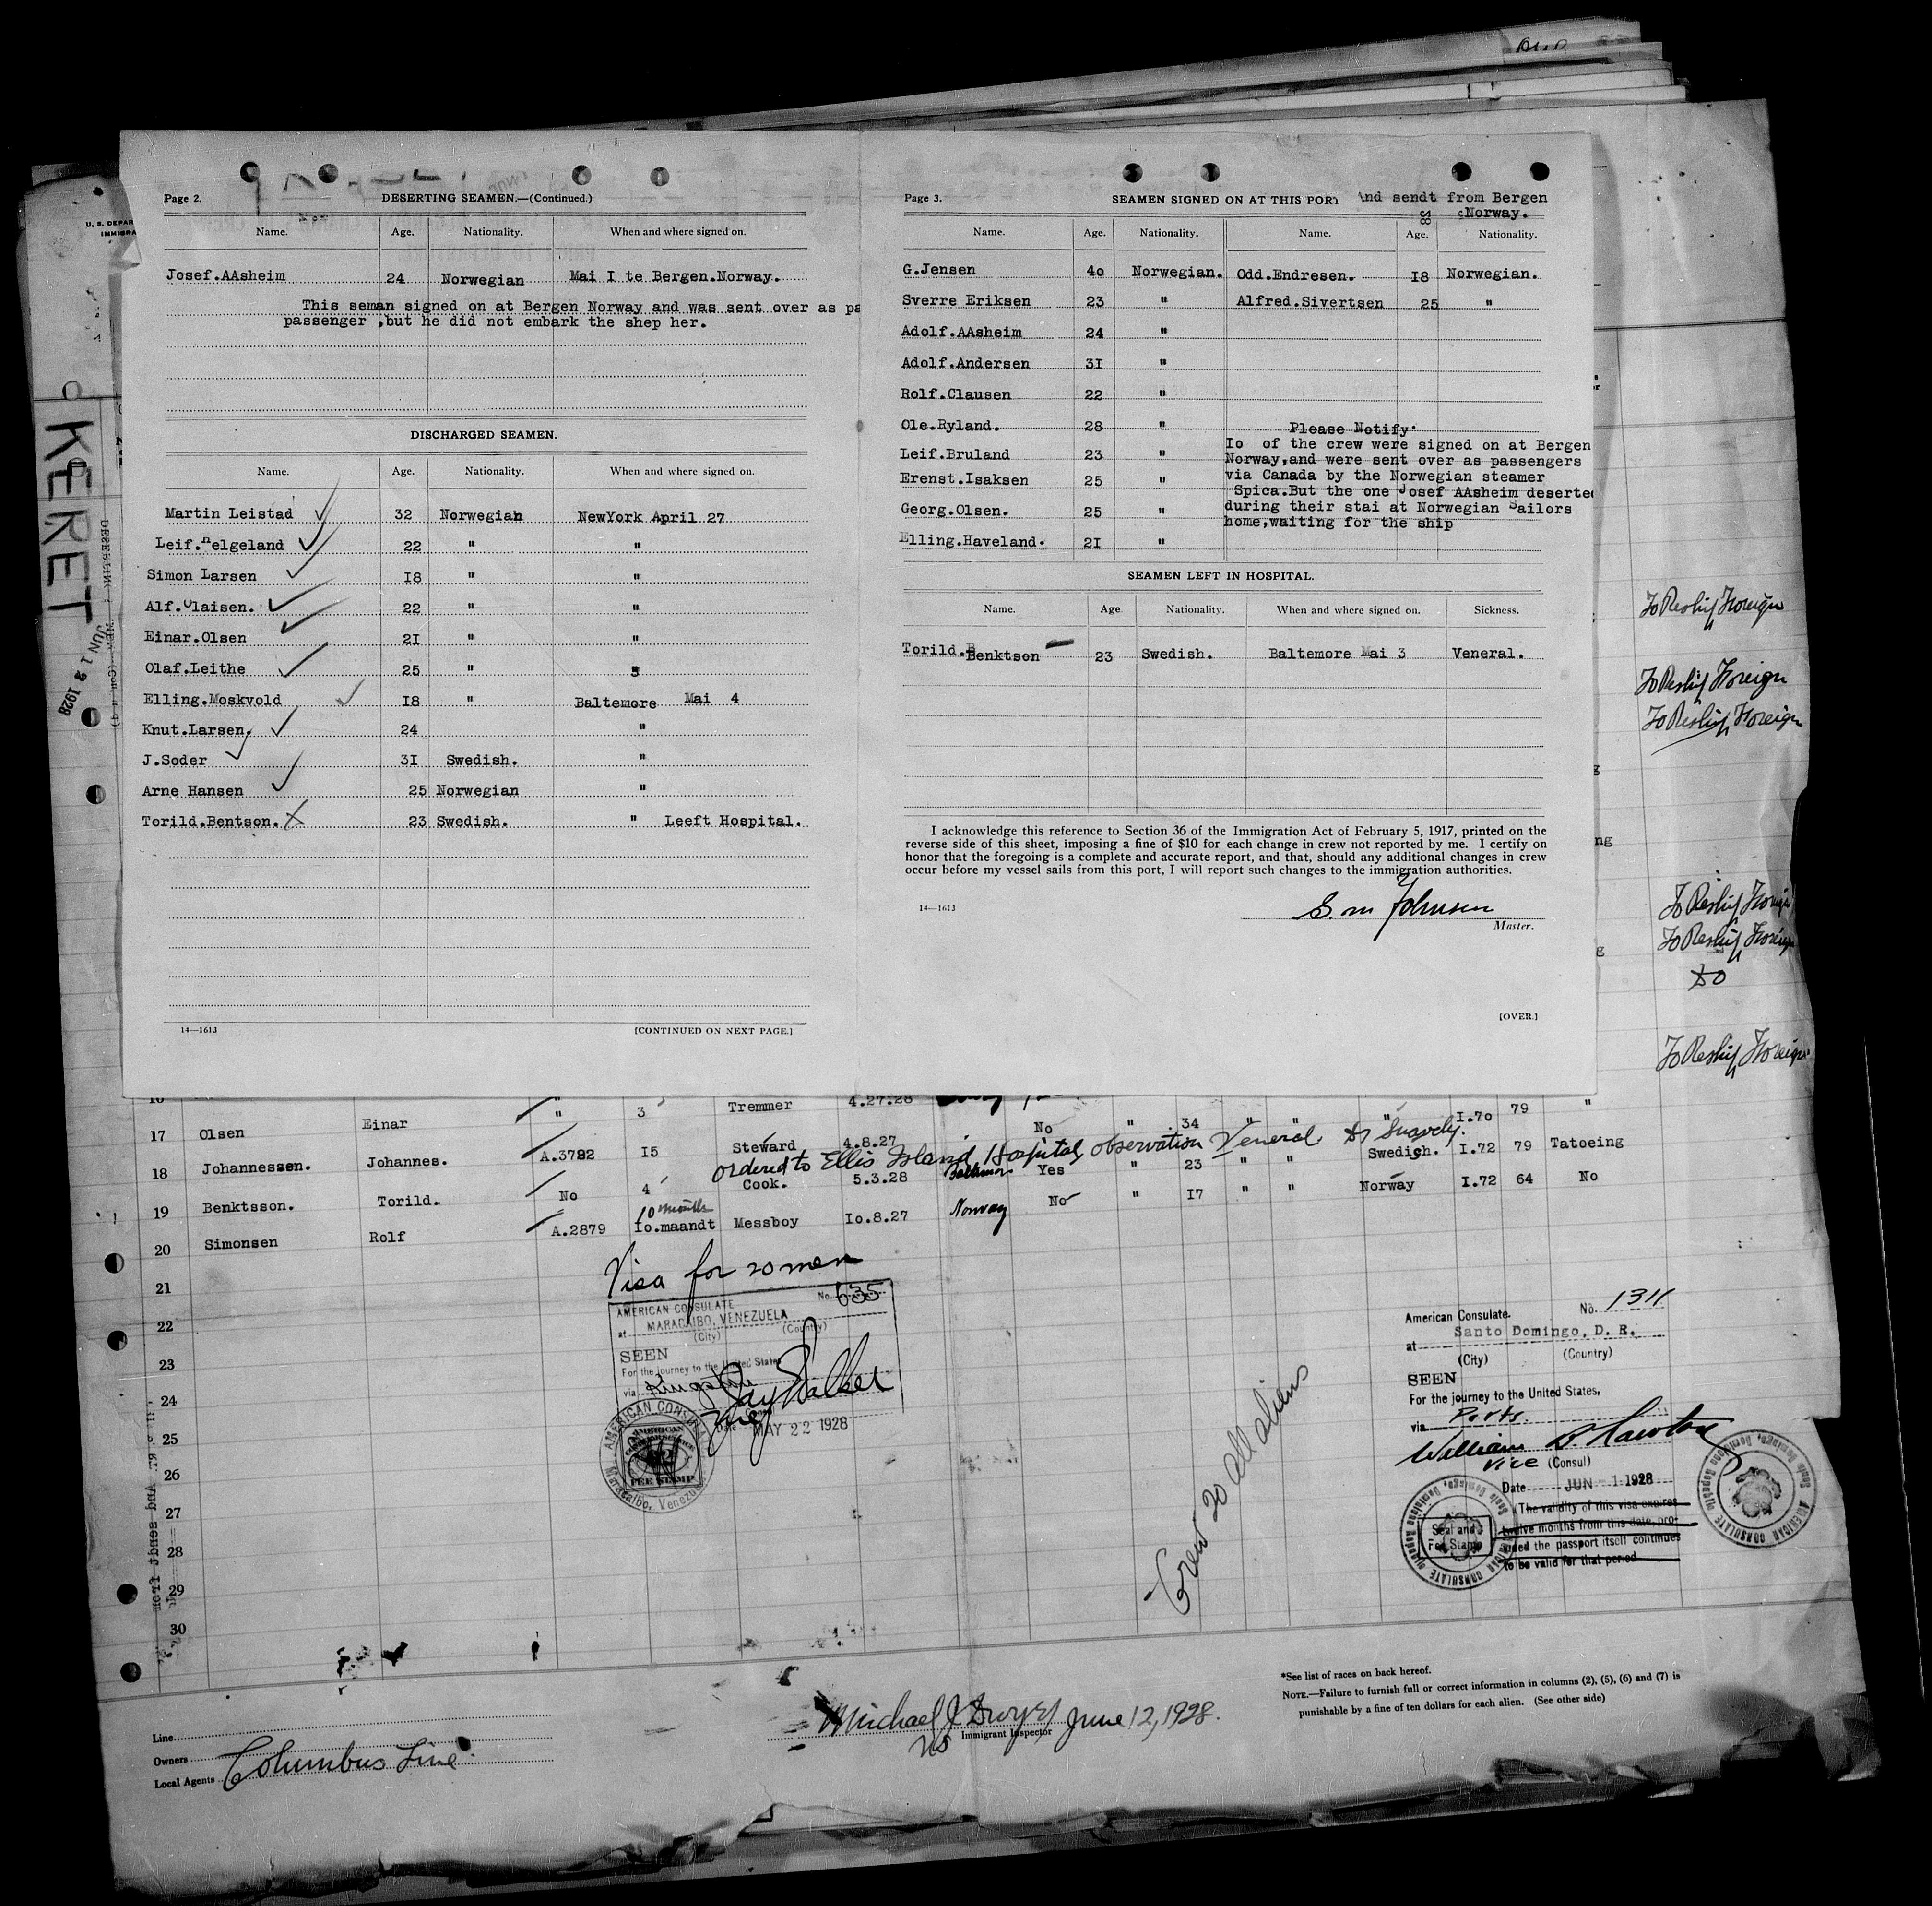 Page 2.
DESERTING SEAMEN.—(Continued.)
Name. Age. Nationality. When and where signed on.
Josef.AAsheim 24 Norwegian Mai I te Bergen.Norway.
This seman signed on at Bergen Norway and was sent over as pa
passenger ,but he did not embark the shep her.
DISCHARGED SEAMEN.
Name. Age. Nationality. When and where signed on.
Martin Leistad 32 Norwegian NewYork April 27
Leif.Helgeland 22 " "
Simon Larsen 18 " "
Alf.Claisen. 22 " "
Einar.Olsen 21 " "
Olaf.Leithe 25 " "
Elling.Moskvold 18 " Baltemore Mai 4
Knut.Larsen. 24 "
J.Soder 31 Swedish. "
Arne Hansen 25 Norwegian "
Torild.Bentson. X 23 Swedish. " Leeft Hospital.
14—1613
[CONTINUED ON NEXT PAGE.]
Page 3.
SEAMEN SIGNED ON AT THIS PORT And sendt from Bergen
Norway.
Name. Age. Nationality. Name. Age. Nationality.
G.Jensen 40 Norwegian. Odd.Endresen. 18 Norwegian.
Sverre Eriksen 23 " Alfred.Sivertsen 25 "
Adolf.AAsheim 24 "
Adolf.Andersen 31 "
Rolf.Clausen 22 "
Ole.Ryland. 28 "
Leif.Bruland 23 "
Erenst.Isaksen 25 "
Georg.Olsen. 25 "
Elling.Haveland. 21 "
Please Notify.
Io of the crew were signed on at Bergen
Norway,and were sent over as passengers
via Canada by the Norwegian steamer
Spica.But the one Josef AAsheim deserted
during their stai at Norwegian Sailors
home,waiting for the ship
SEAMEN LEFT IN HOSPITAL.
Name. Age Nationality. When and where signed on. Sickness.
Torild.Benktson 23 Swedish. Baltemore Mai 3 Veneral.
I acknowledge this reference to Section 36 of the Immigration Act of February 5, 1917, printed on the
reverse side of this sheet, imposing a fine of $10 for each change in crew not reported by me. I certify on
honor that the foregoing is a complete and accurate report, and that, should any additional changes in crew
occur before my vessel sails from this port, I will report such changes to the immigration authorities.
14—1613
S. M Johnsen
Master.
[OVER.]
U. S. DEPAR
IMMIGRA
KERET
JUN 12 1928
To Reship Foreign
To Reship Foreign
To Reship Foreign
To Reship Foreign
To Reship Foreign
Do
To Reship Foreign
16
17 Olsen Einar " 3 Tremmer 4.27.28 " I.70 79 "
18 Johannessen. Johannes. A.3792 I5 Steward 4.8.27 No " 34 " "
ordered to Ellis Island Hospital, observation Veneral.
19 Benktsson. Torild. No 4 Cook. 5.3.28 Baltimore Yes " 23 " " Swedich. I.72 79 Tatoeing
10 months
20 Simonsen Rolf A.2879 Io.maandt Messboy Io.8.27 Norway No " I7 " " Norway I.72 64 No
21
22
23
24
25
26
27
28
29
30
Visa for 20 men
AMERICAN CONSULATE No. 635
at MARACAIBO, VENEZUELA
(City) (Country)
SEEN
For the journey to the United States
via Kingston
Jay Walker
Consul
Date MAY 22 1928
AMERICAN CONSULATE
Maracaibo, Venezuela
AMERICAN
FEE STAMP
Crew 20 all aliens
American Consulate. No. 1311
at Santo Domingo, D. R.
(City) (Country)
SEEN
For the journey to the United States,
via Ports.
William B. Lawton
Vice (Consul)
Date JUN -1 1928
(The validity of this visa expires
twelve months from this date, pro-
vided the passport itself continues
to be valid for that period
Seal and
Fee Stamp
AMERICAN CONSULATE
Santo Domingo, Dominican Republic
*See list of races on back hereof.
NOTE.—Failure to furnish full or correct information in columns (2), (5), (6) and (7) is
punishable by a fine of ten dollars for each alien. (See other side)
Line
Owners
Local Agents Columbus Line
Michael J Dwyer June 12, 1928.
Immigrant Inspector